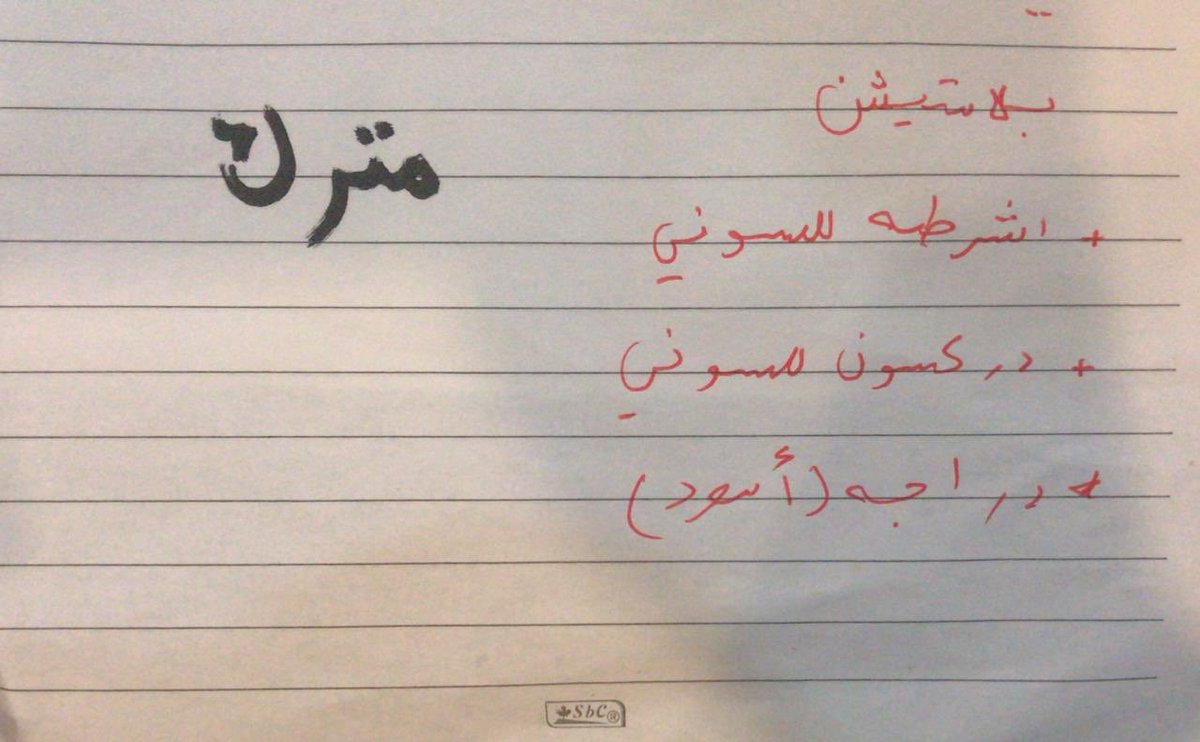 بلاستيشن
مترك
+ اشرطه للسوني
+ دركسون للسوني
+ دراجه (أسود)
SbC®